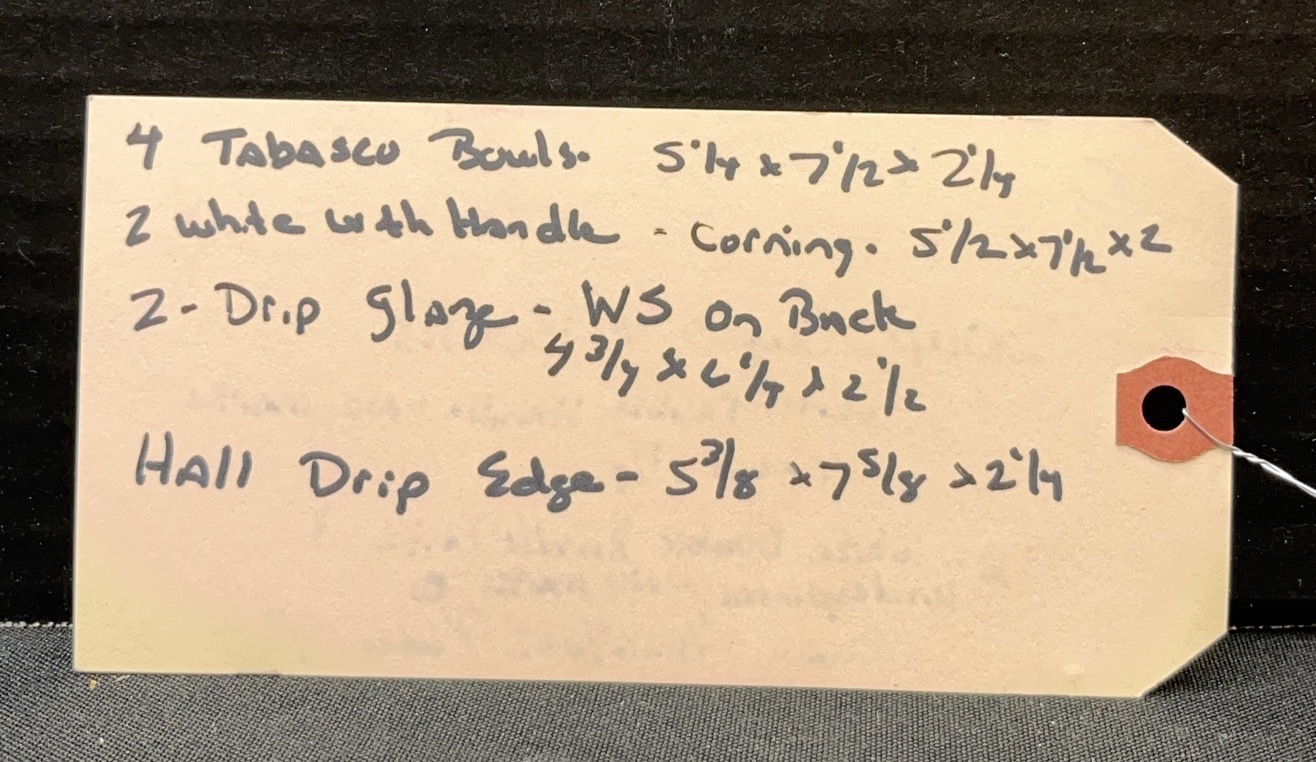 4 Tabasco Bowls. 5 1/4 x 7 1/2 x 2 1/4
2 white with Handle - Corning. 5 1/2 x 7 1/2 x 2
2 - Drip Glaze - WS on Back
4 3/4 x 6 1/4 x 2 1/2
Hall Drip Edge - 5 3/8 x 7 5/8 x 2 1/4